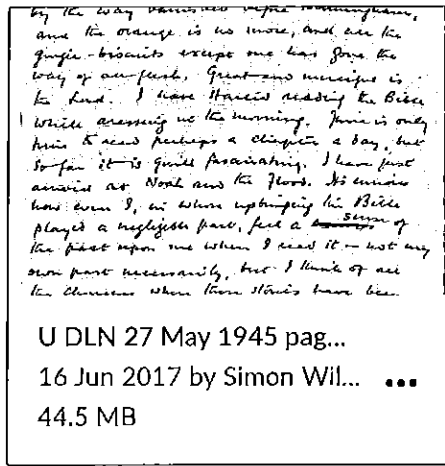 by the way vanished before Wolverhampton,
and the orange is no more, and all the
ginger-biscuits except one has gone the
way of all flesh. Great and merciful is
the Lord. I have started reading the Bible
while dressing in the morning. There is only
time to read perhaps a chapter a day, but
so far it is quite fascinating. I have just
arrived at Noah and the Flood. It's curious
how even I, in whose upbringing the Bible
played a negligible part, feel a sense of
the past upon me when I read it – not my
own past necessarily, but I think of all
the when these stories have
U DLN 27 May 1945 pag...
16 Jun 2017 by Simon Wil... •••
44.5 MB